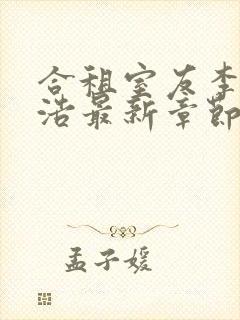 合租室友李
浩最新章节
孟子媛